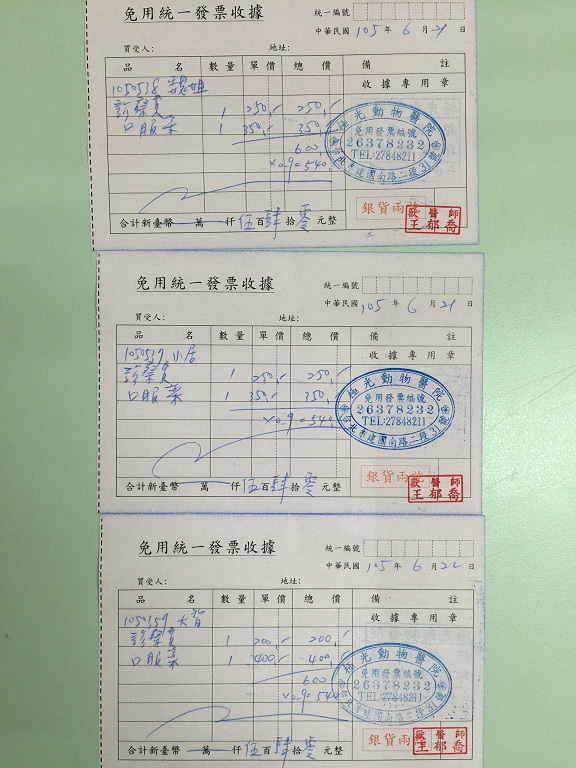 免用統一發票收據
統一編號
中華民國 105 年 6 月 21 日
買受人: 地址:
品名 數量 單價 總價 備註
1050538 收據專用章
診察費 1 250,- 250,-
口服藥 1 350,- 350,-
600
×0.9=540,-
極光動物醫院
免用發票編號
26378232
TEL:27848211
台北市建國南路二段31號
銀貨兩訖
獸醫師
王郁喬
合計新臺幣 萬 仟 伍 百 肆 拾 零 元整
免用統一發票收據
統一編號
中華民國 105 年 6 月 21 日
買受人: 地址:
品名 數量 單價 總價 備註
1050539 小居 收據專用章
診察費 1 250,- 250,-
口服藥 1 350,- 350,-
×0.9=540,-
極光動物醫院
免用發票編號
26378232
TEL:27848211
台北市建國南路二段31號
銀貨兩訖
獸醫師
王郁喬
合計新臺幣 萬 仟 伍 百 肆 拾 零 元整
免用統一發票收據
統一編號
中華民國 105 年 6 月 22 日
買受人: 地址:
品名 數量 單價 總價 備註
1050359 收據專用章
診察費 1 200,- 200,-
口服藥 1 400,- 400,-
600
×0.9=540
極光動物醫院
免用發票編號
26378232
TEL:27848211
台北市建國南路二段31號
銀貨兩訖
獸醫師
王郁喬
合計新臺幣 萬 仟 伍 百 肆 拾 零 元整